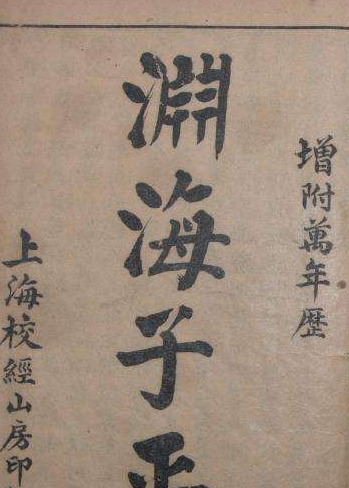 增附萬年歷
淵海子平
上海校經山房印